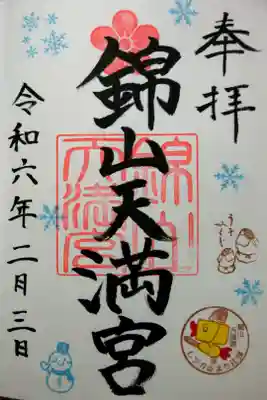 奉拝
錦山天満宮
錦山天満宮
令和六年二月三日